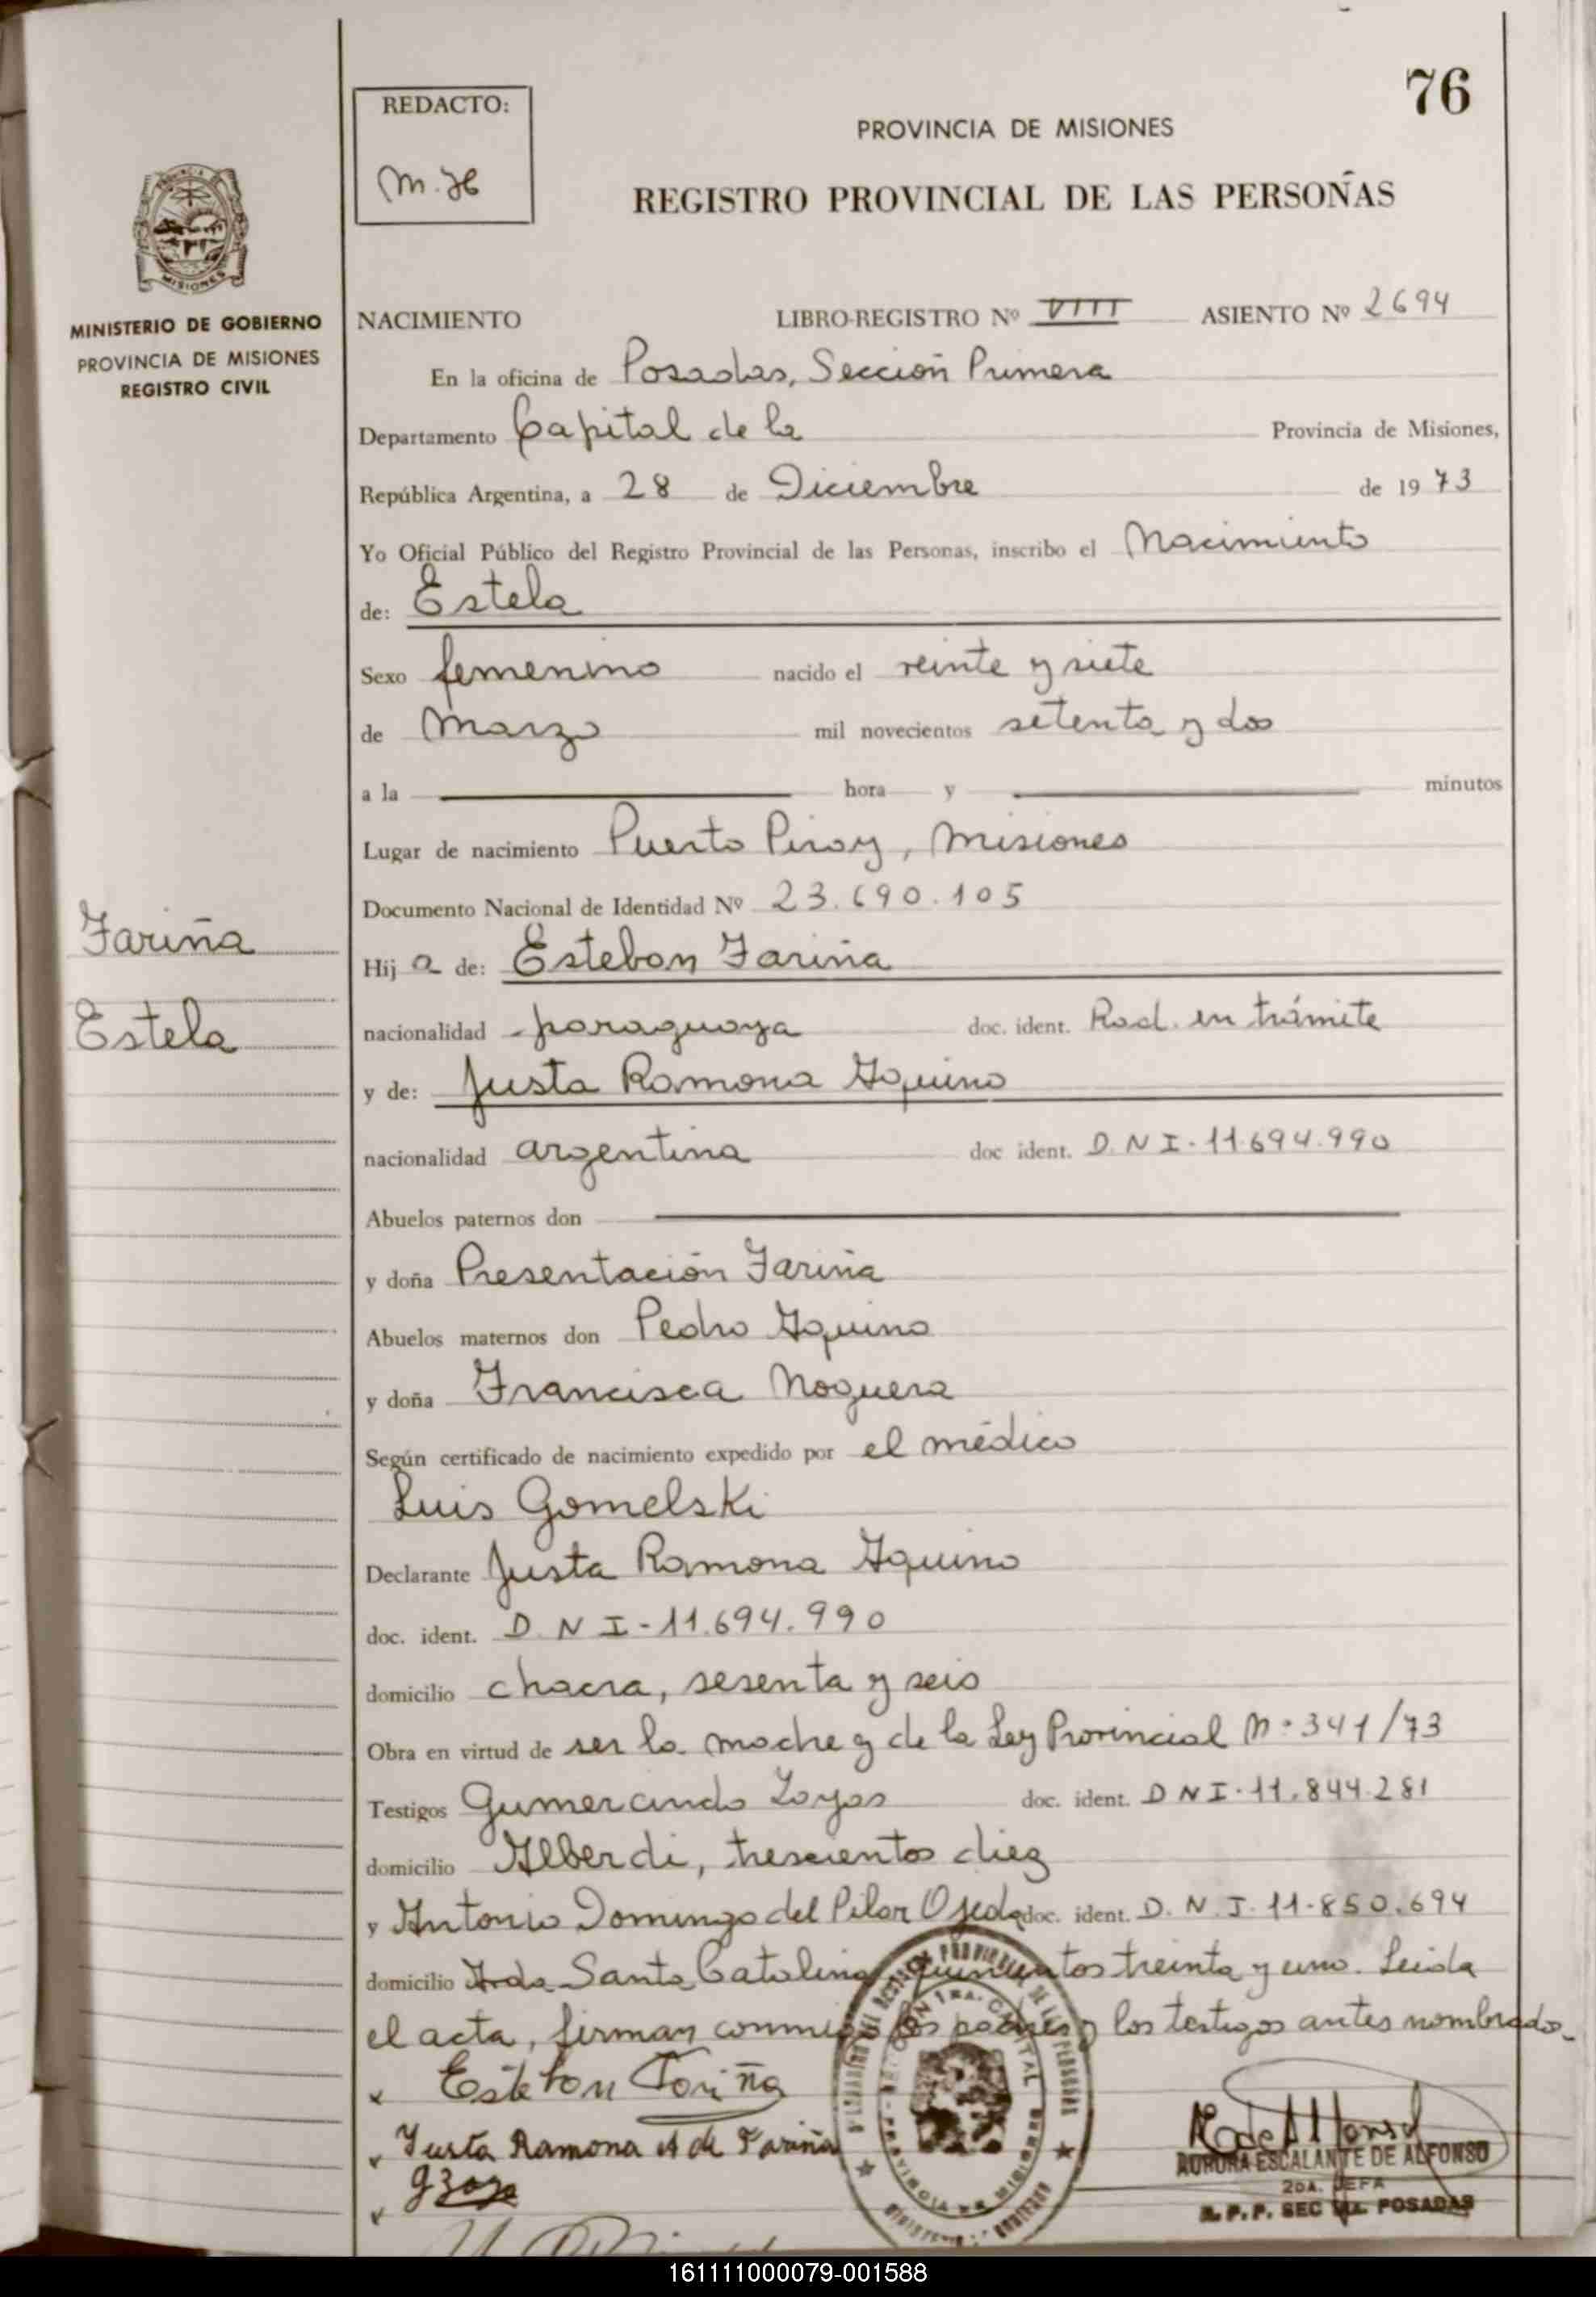 76
REDACTO:
M. H
PROVINCIA DE MISIONES
REGISTRO PROVINCIAL DE LAS PERSONAS
MISIONES
MINISTERIO DE GOBIERNO
PROVINCIA DE MISIONES
REGISTRO CIVIL
NACIMIENTO LIBRO-REGISTRO Nº VIII ASIENTO Nº 2694
En la oficina de Posadas, Sección Primera
Departamento Capital de la Provincia de Misiones,
República Argentina, a 28 de Diciembre de 1973
Yo Oficial Público del Registro Provincial de las Personas, inscribo el Nacimiento
de: Estela
Sexo femenino nacido el veinte y siete
de Marzo mil novecientos setenta y dos
a la hora y minutos
Lugar de nacimiento Puerto Piray, Misiones
Documento Nacional de Identidad Nº 23.690.105
Fariña
Estela
Hija de: Esteban Fariña
nacionalidad paraguaya doc. ident. Rad. en trámite
y de: Justa Ramona Aquino
nacionalidad argentina doc ident. D.N.I-11.694.990
Abuelos paternos don
y doña Presentación Fariña
Abuelos maternos don Pedro Aquino
y doña Francisca Noguera
Según certificado de nacimiento expedido por el médico
Luis Gomelski
Declarante Justa Ramona Aquino
doc. ident. D N I-11.694.990
domicilio chacra, sesenta y seis
Obra en virtud de ser la madre y de la Ley Provincial Nº 341/73
Testigos Gumercindo Zoyas doc. ident. D N I-11.844.281
domicilio Alberdi, trescientos diez
y Antonio Domingo del Pilar Ojeda doc. ident. D. N. I. 11.850.694
domicilio Avda Santa Catalina quinientos treinta y uno. Leída
el acta, firman conmigo los padres y los testigos antes nombrados.
Esteban Fariña
Justa Ramona A de Fariña
AURORA ESCALANTE DE ALFONSO
2DA. JEFA
R. P. P. SEC 1RA. POSADAS
161111000079-001588